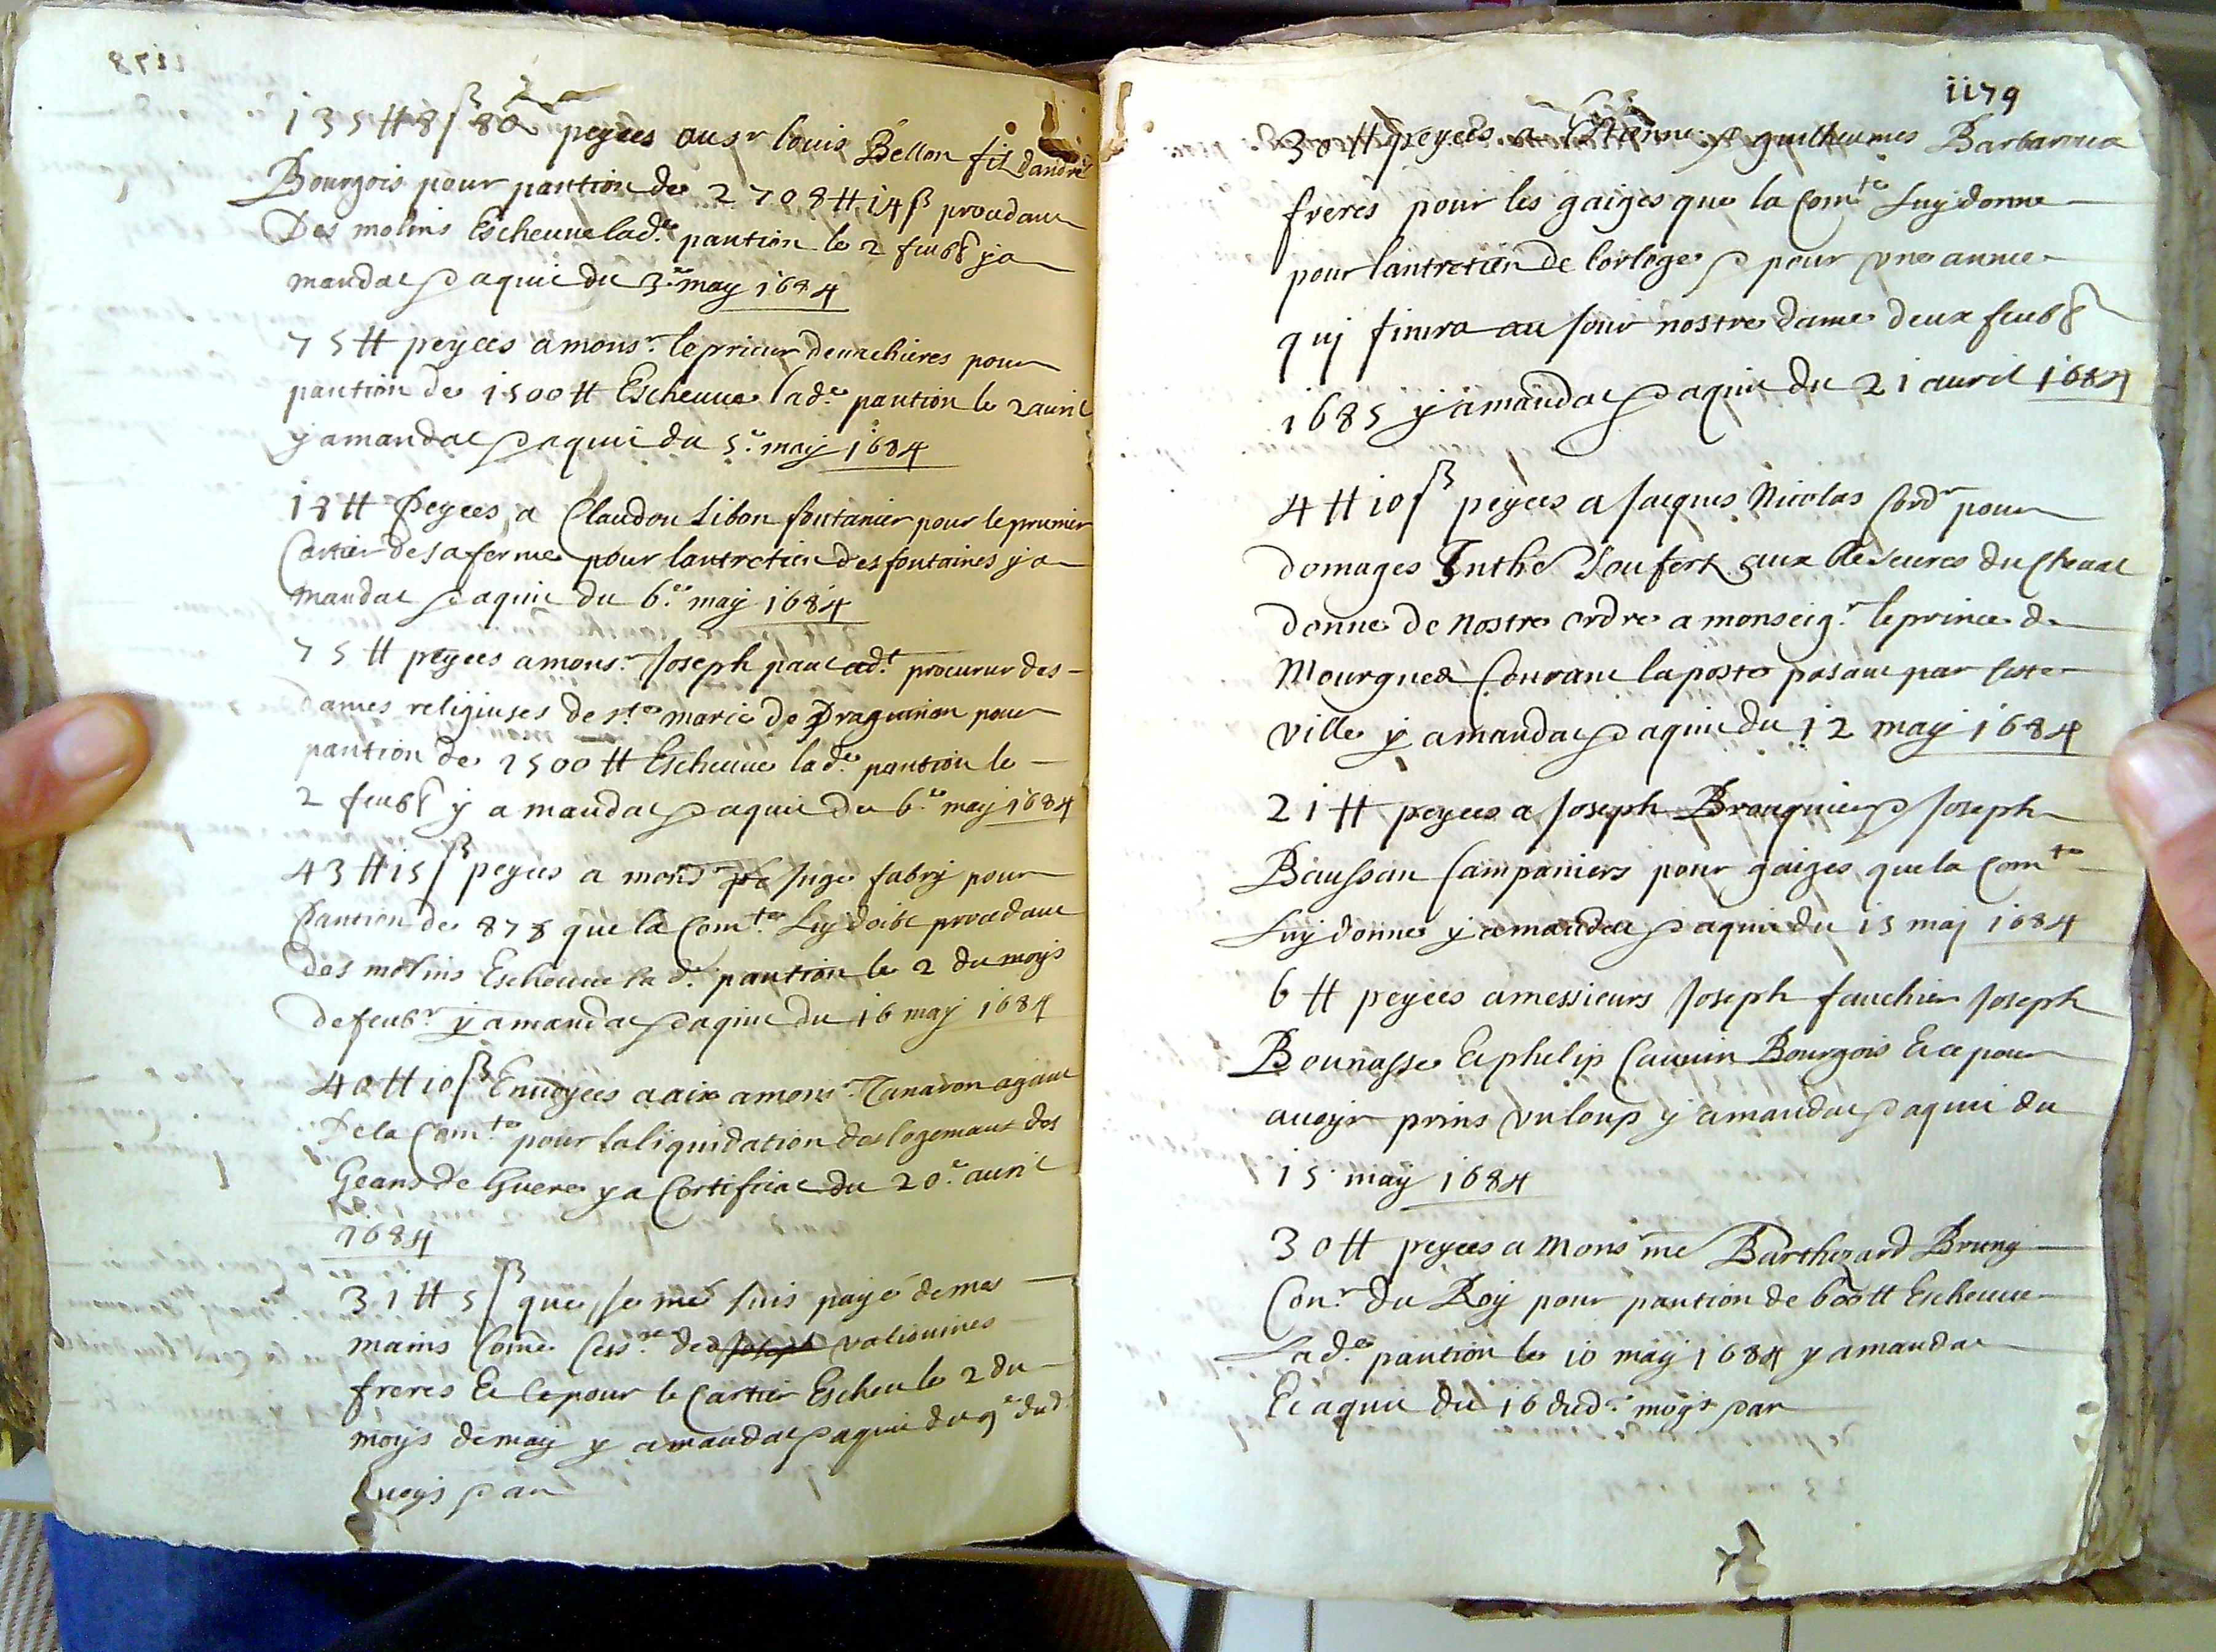 135 tt 8 s 8 d peyees au sr louis Bellon fils dandré
Bourgois pour pantion de 2708 tt 14 s procedant
Des molins Escheuue lad.e pantion le 2 feub.r y a
mandat & aquit du 3.e may 1684
75 tt peyees a mons.r le prieur pour
pantion de 1500 tt Escheuue lad.e pantion le 2 auril
y a mandat & aquit du 5.e may 1684
18 tt Peyees a Claudou Libon fontanier pour le prumier
Cartier de sa ferme pour lantretien des fontaines y a
mandat & aquit du 6.e may 1684
75 tt peyees a mons.r Joseph paul ad.t procurur des
dames religiuses de s.te marie de Draguinion pour
pantion de 1500 tt Escheuue lad.e pantion le
2 feub.r y a mandat & aquit du 6.e may 1684
43 tt 15 s peyees a mons.r Juge fabry pour
Pantion de 875 que la Com.te Luy doibt procedant
des molins Escheuue lad.e pantion le 2 du moys
de feub.r y a mandat & aquit du 16 may 1684
40 tt 10 s Enuoyees a aix a mons.r Tanaron agant
De la Com.te pour la liquidation des logemant des
Geans de Guere y a Certificat du 20.e auril
1684
31 tt 5 s que Je me suis payé de mes
mains Come Cess.re de valiouines
freres Et ce pour le Cartier Escheu le 2 du
moys de may y a mandat & aquit du 9.e dud.
moys par
1179
30 tt peyees a Estienne & guilheumes Barbaroux
freres pour les gaiges que la Com.te Luy donne
pour lantretien de lorloge & pour vne annee
quj finira au Jour nostre dame deux feub.r
1685 y a mandat & aquit du 21 auril 1684
4 tt 10 s peyees a Jacques Nicolas Cord.r pour
domages Soufert aux bleseures du Cheual
donne de nostre ordre a monseig.r le prince de
Mourgues Courant la poste pasant par Ceste
ville y a mandat & aquit du 12 may 1684
21 tt peyees a Joseph Brouquier & Joseph
Baussan Campaniers pour gaiges que la Com.te
Luy donne y a mandat & aquit du 15 maj 1684
6 tt peyees a messieurs Joseph fauchier Joseph
Bounasse Et phelip Cauuin Bourgois Et ce pour
auoyr prins vn loup y a mandat & aquit du
15 may 1684
30 tt peyees a Mons.r me Barthezard Bruny
Con.r du Roy pour pantion de 600 tt Escheuue
Lad.e pantion le 10 may 1684 y a mandat
Et aquit du 16 dud.t moys par